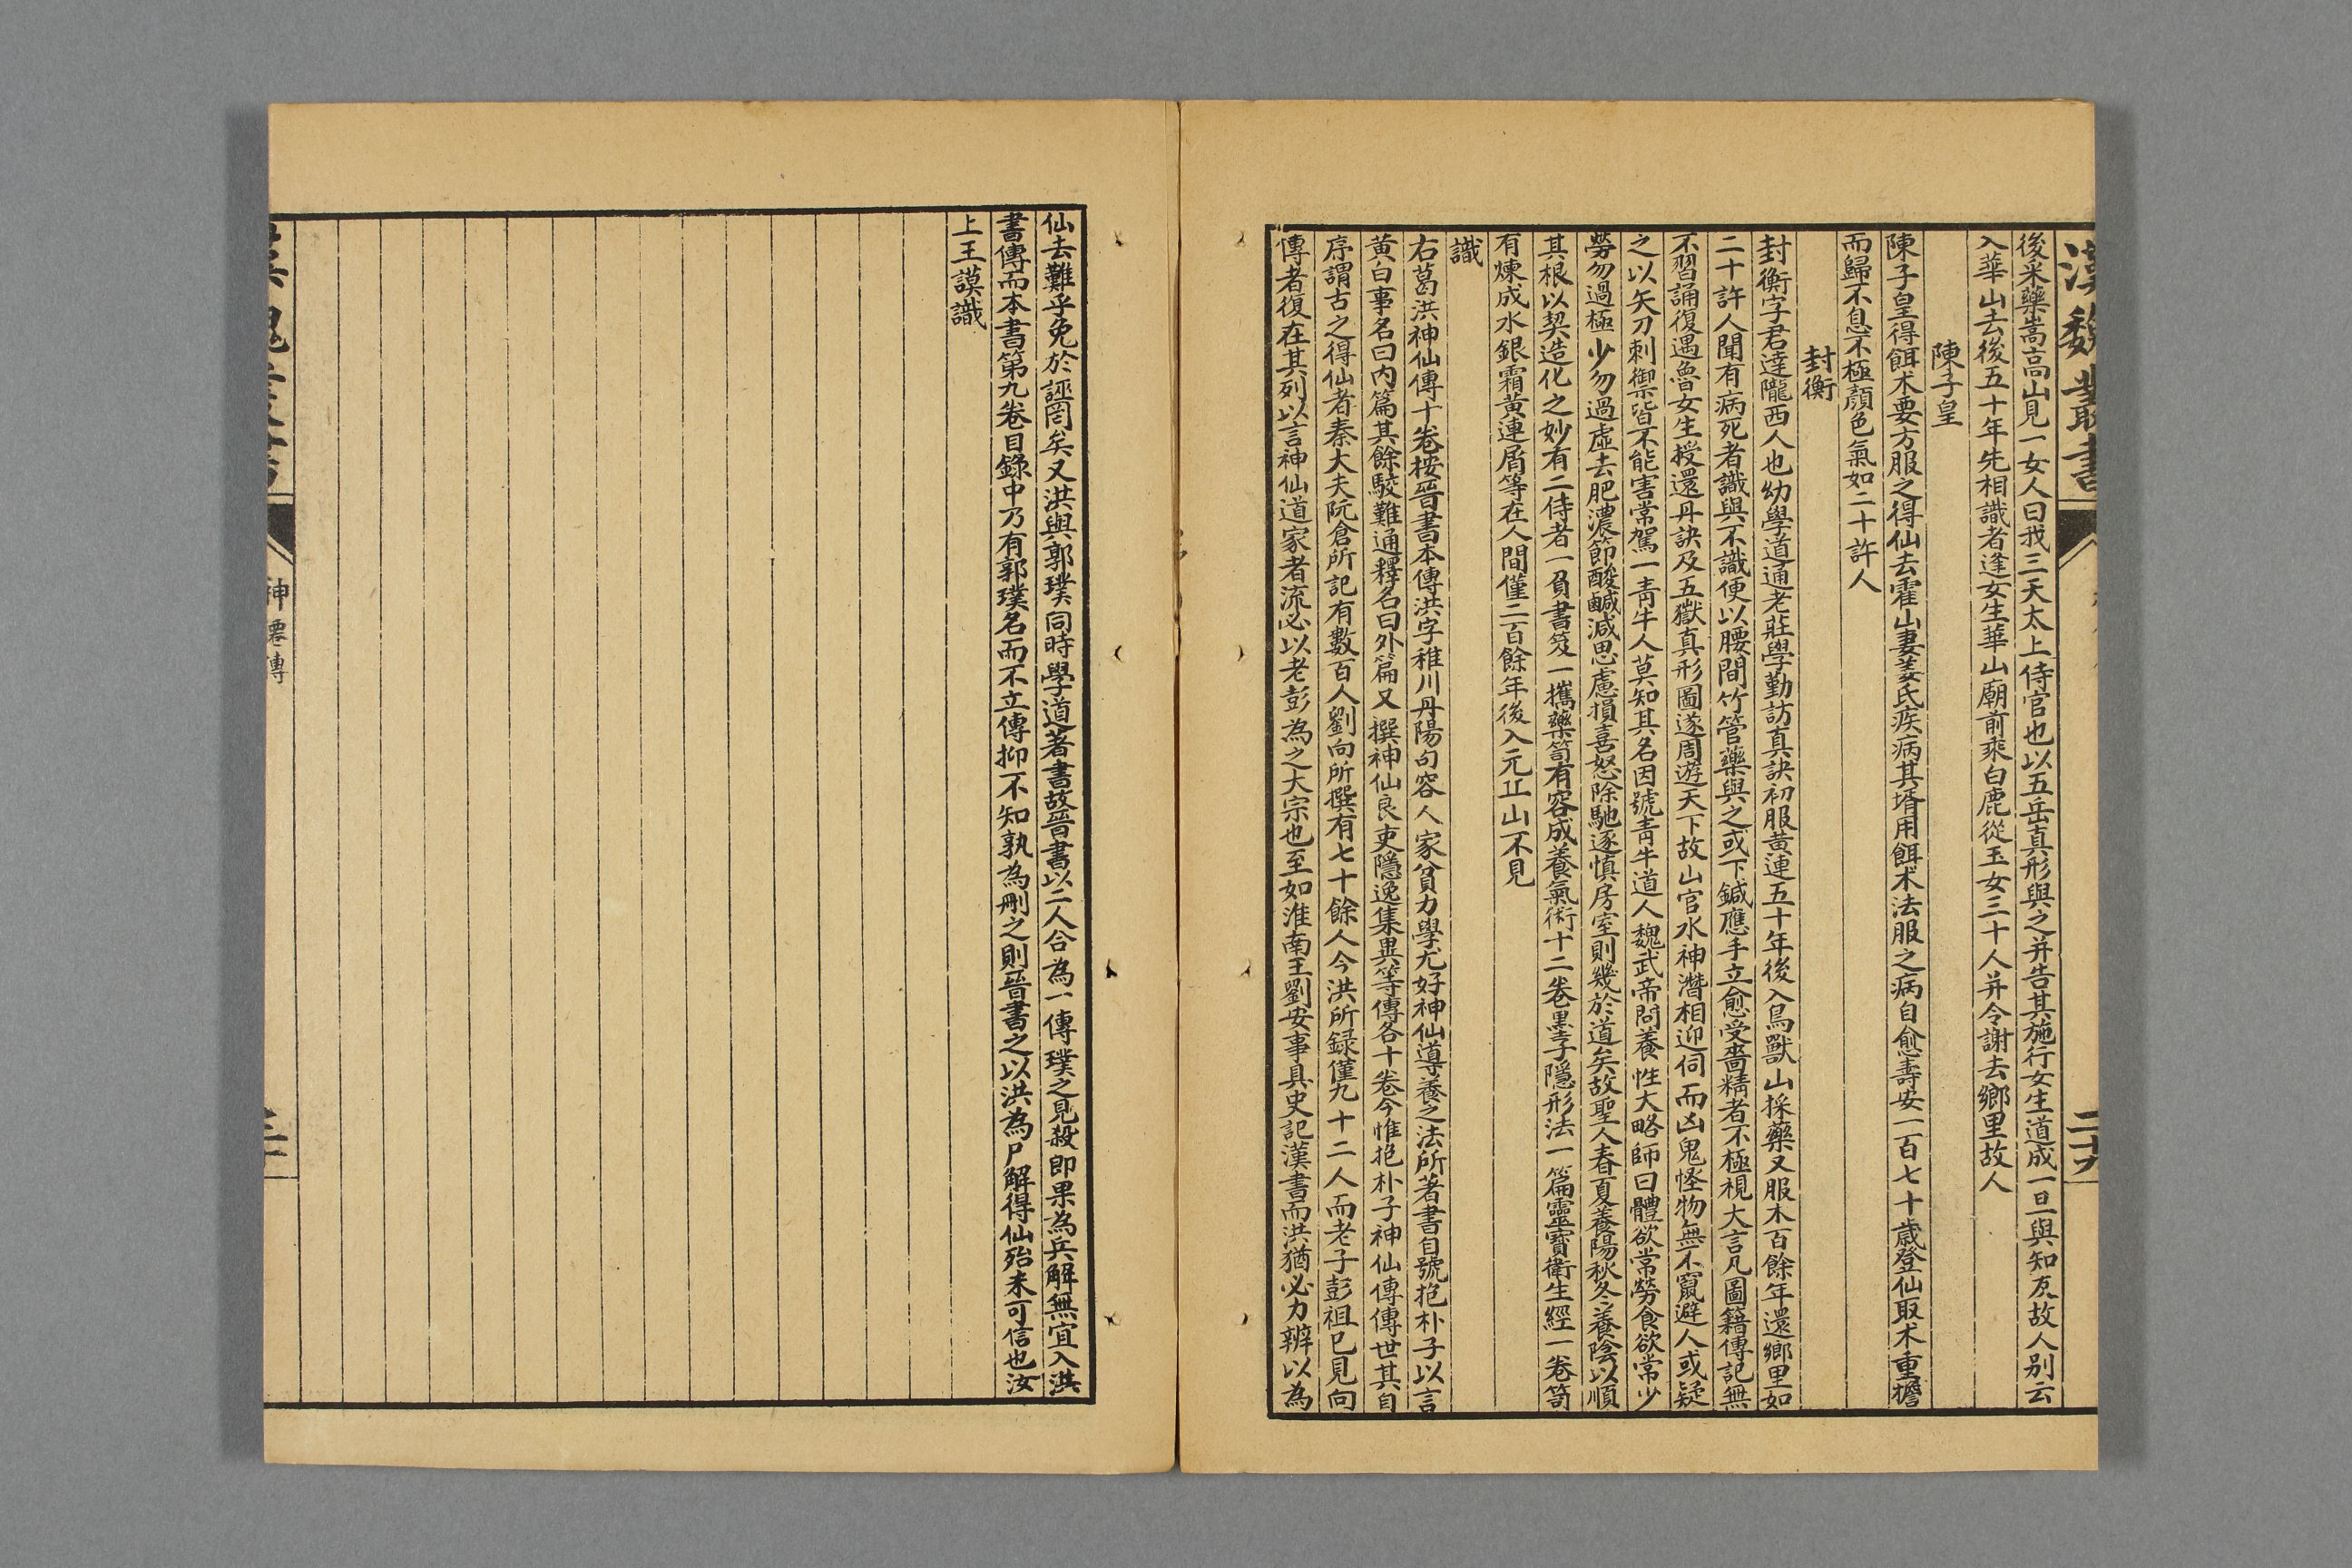 漢魏叢書
二十九
後采藥嵩高山見一女人曰我三天太上侍官也以五岳真形與之并告其施行女生道成一旦與知友故人别云
入華山去後五十年先相識者逢女生華山廟前乘白鹿從玉女三十人并令謝去鄉里故人
陳子皇
陳子皇得餌朮要方服之得仙去霍山妻姜氏疾病其壻用餌朮法服之病自愈壽安一百七十歲登仙取朮重擔
而歸不息不極顏色氣如二十許人
封衡
封衡字君達隴西人也幼學道通老莊學勤訪真訣初服黃連五十年後入鳥獸山採藥又服木百餘年還鄉里如
二十許人聞有病死者識與不識便以腰間竹管藥與之或下鍼應手立愈受嗇精者不極視大言凡圖籍傳記無
不習誦復遇魯女生授還丹訣及五嶽真形圖遂周遊天下故山官水神潛相迎伺而凶鬼怪物無不竄避人或疑
之以矢刀刺禦皆不能害常駕一青牛人莫知其名因號青牛道人魏武帝問養性大略師曰體欲常勞食欲常少
勞勿過極少勿過虛去肥濃節酸鹹減思慮損喜怒除馳逐慎房室則幾於道矣故聖人春夏養陽秋冬養陰以順
其根以契造化之妙有二侍者一負書笈一攜藥笥有容成養氣術十二卷墨子隱形法一篇靈寶衛生經一卷笥
有煉成水銀霜黃連屑等在人間僅二百餘年後入元丠山不見
識
右葛洪神仙傳十卷按晉書本傳洪字稚川丹陽句容人家貧力學尤好神仙導養之法所著書自號抱朴子以言
黃白事名曰內篇其餘駮難通釋名曰外篇又撰神仙良吏隱逸集異等傳各十卷今惟抱朴子神仙傳傳世其自
序謂古之得仙者秦大夫阮倉所記有數百人劉向所撰有七十餘人今洪所録僅九十二人而老子彭祖已見向
傳者復在其列以言神仙道家者流必以老彭為之大宗也至如淮南王劉安事具史記漢書而洪猶必力辨以為
仙去難乎免於誣罔矣又洪與郭璞同時學道著書故晉書以二人合為一傳璞之見殺即果為兵解無宜入洪
書傳而本書第九卷目錄中乃有郭璞名而不立傳抑不知孰為刪之則晉書之以洪為尸解得仙殆未可信也汝
上王謨識
漢魏叢書
神僊傳